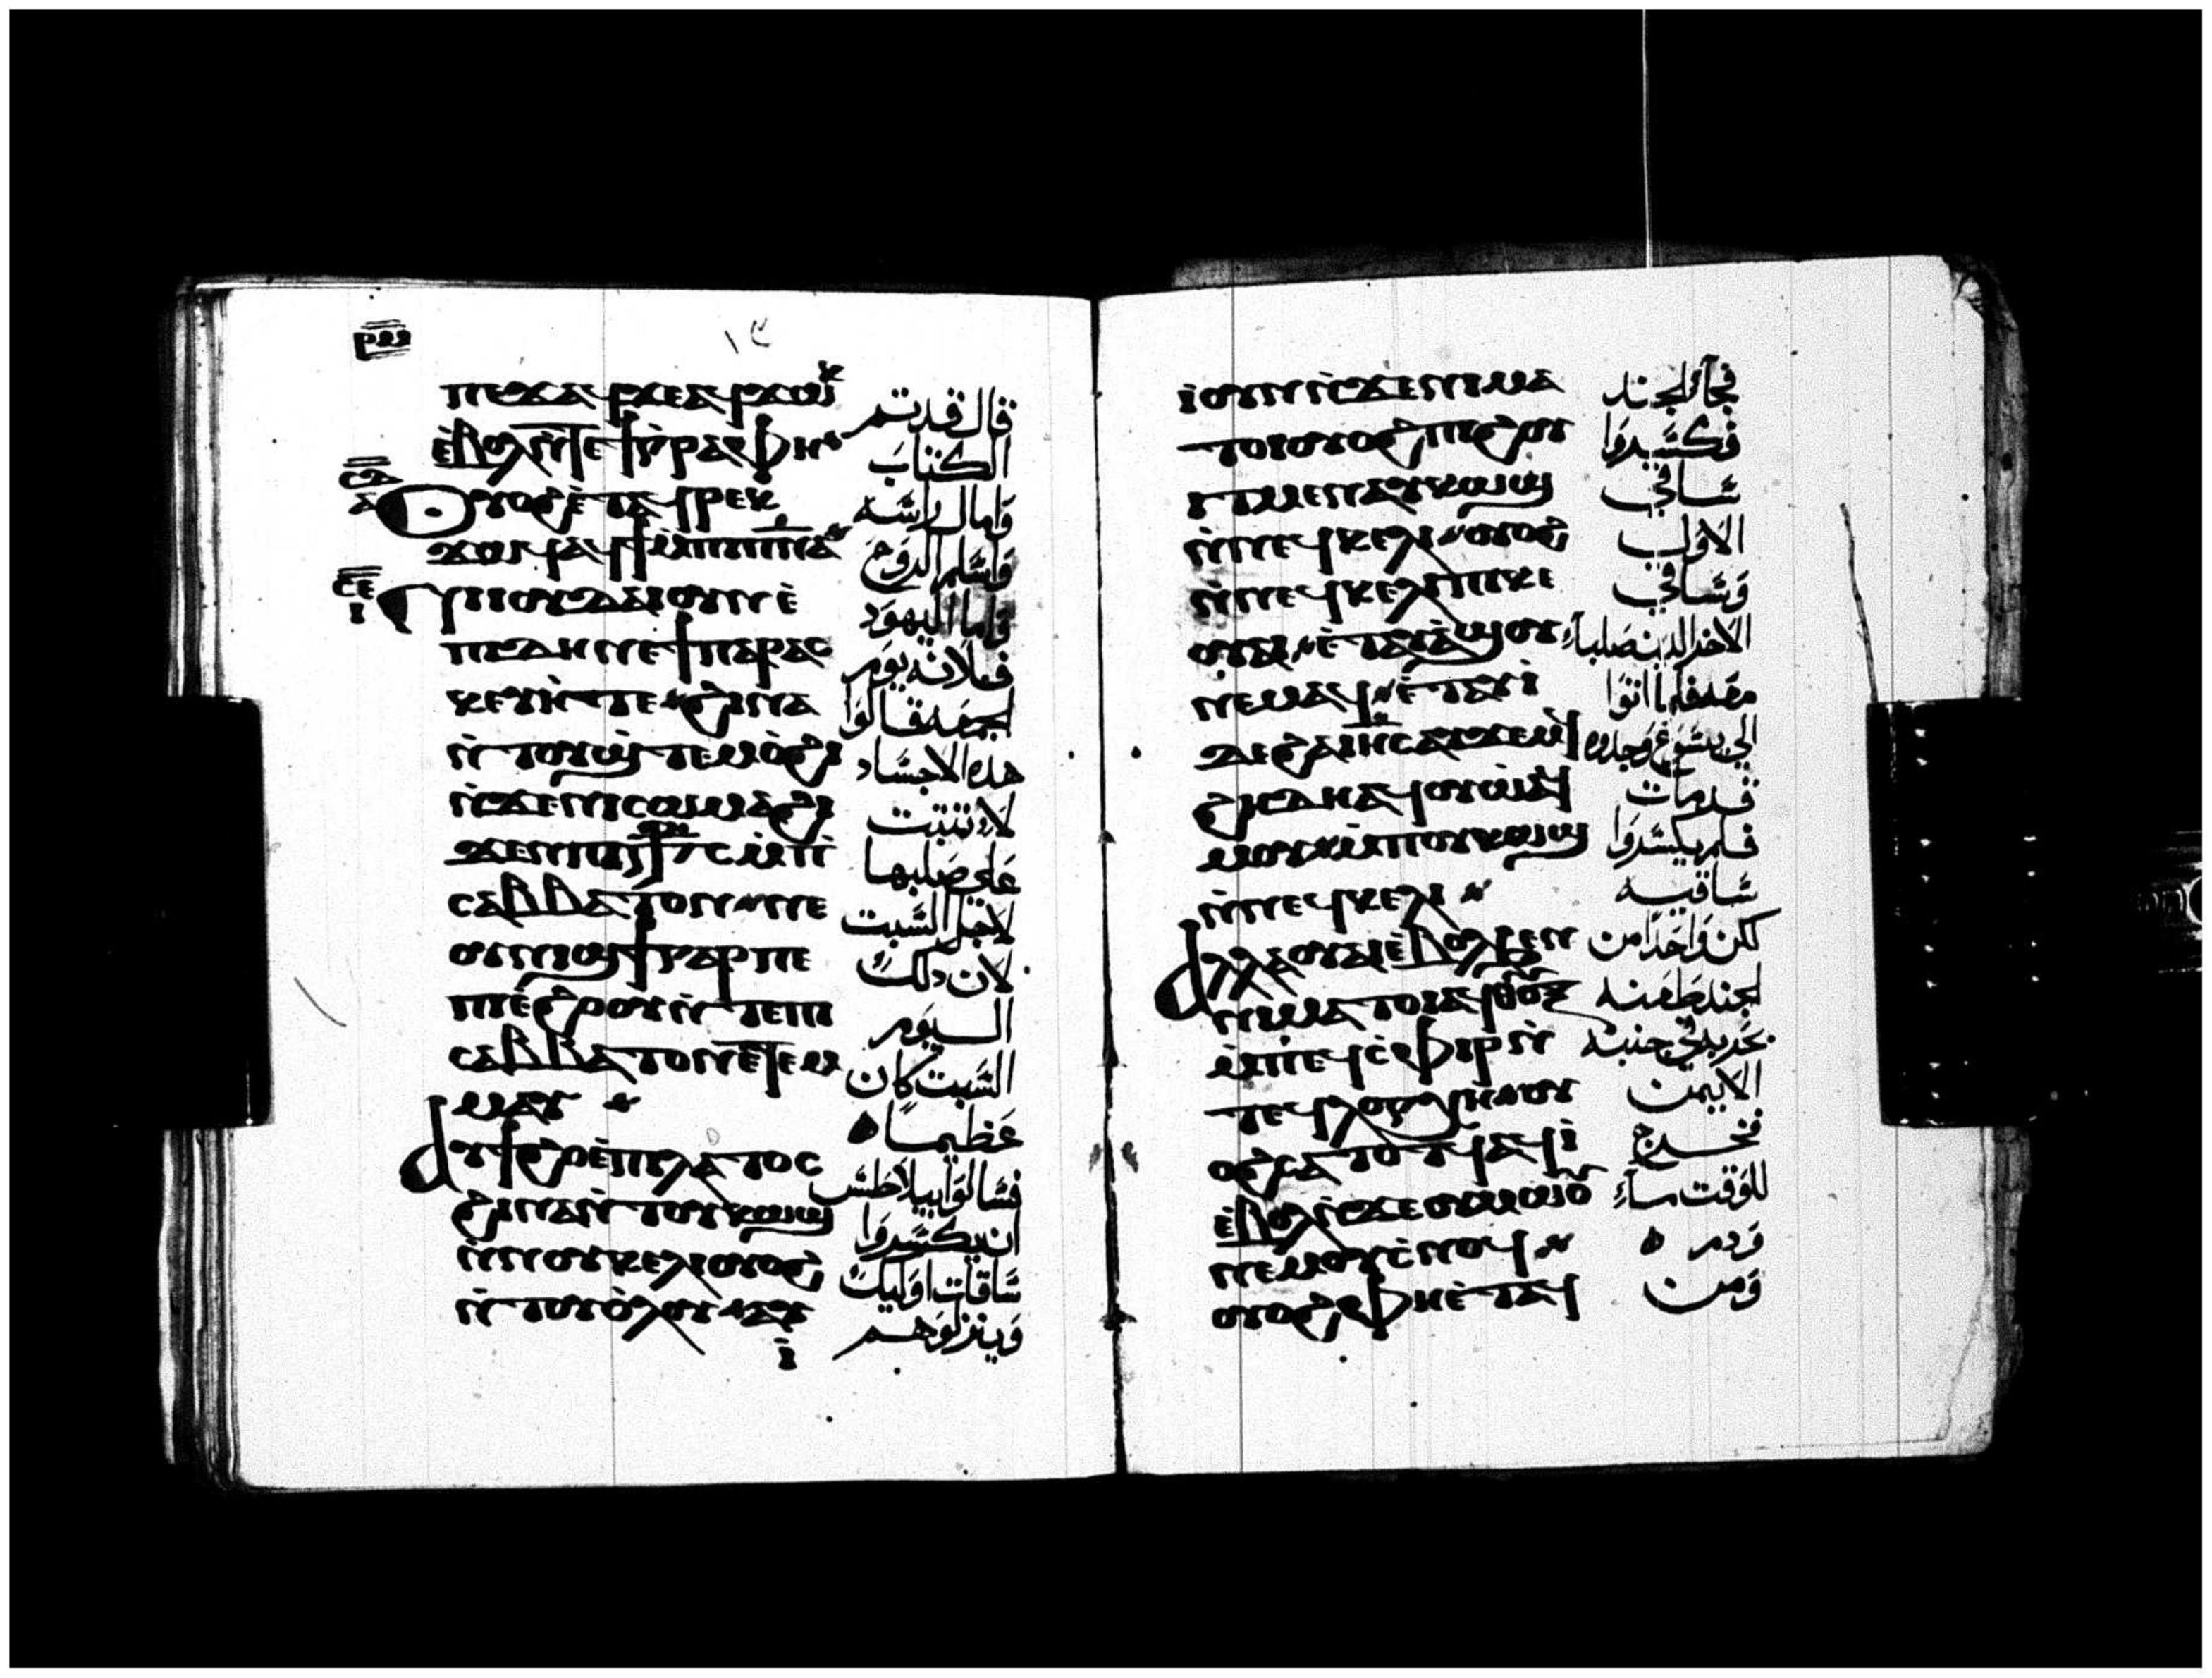 ⲣⲙ
١٩
ⲡⲉϫⲁϥ ϫⲉ ⲁϥϫⲱⲕ قال قد تم
ⲉ̀ⲃⲟⲗ ⲛ̀ϫⲉ ϯⲅⲣⲁⲫⲏ الكتاب
ⲟⲩⲟϩ ⲉ̀ⲧⲁϥⲣⲉⲕ وامال راسه
ϫⲱϥ ⲁϥϯ ⲙ̀ⲡⲓⲡⲛ̅ⲁ̅ واسلم الروح
ⲛⲓⲓⲟⲩⲇⲁⲓ ⲟⲩⲛ ⲉ̀ واما اليهود
ⲡⲓⲇⲏ ⲛⲉ ϯⲡⲁⲣⲁⲥ فلانه يوم
ⲕⲉⲩⲏ ⲧⲉ ϩⲓⲛⲁ الجمعه قالوا
ⲛ̀ⲧⲟⲩϣⲧⲉⲙⲟ̀ϩⲓ هده الاجساد
ⲛ̀ϫⲉ ⲛⲓⲥⲱⲙⲁ ϩⲓ لا تثبت
ϫⲉⲛ ⲙ̀ⲡⲓ على صلبها
ⲥⲁⲃⲃⲁⲧⲟⲛ ⲛⲉ لاجل السبت
ⲟⲩⲛⲓϣϯ ⲅⲁⲣ ⲡⲉ لان دلك
ⲡⲓⲉ̀ϩⲟⲟⲩ ⲛ̀ⲧⲉ ⲡⲓ اليوم
ⲥⲁⲃⲃⲁⲧⲟⲛ ⲉ̀ⲧⲉⲙ السبت كان
ⲙⲁⲩ عظيمًا
ⲁⲩϯϩⲟ ⲉ̀ⲡⲓⲗⲁⲧⲟⲥ فسالوا بيلاطس
ϩⲓⲛⲁ ⲛ̀ⲧⲟⲩⲕⲱϣ ان يكسروا
ⲛ̀ⲛⲟⲩⲕⲉⲗⲓ ⲟⲩⲟϩ ساقات اوليك
ⲛ̀ⲧⲟⲩⲟ̀ⲗⲟⲩ ⲁⲩ وينزلوهم
ⲓ̀
ⲓ̀ ⲟⲩⲛ ⲛ̀ϫⲉ ⲛⲓⲙⲁ فجآء الجند
ⲧⲟⲓ ⲟⲩⲟϩ ⲡⲓϩⲟⲩ فكسروا
ⲓⲧ ⲙⲉⲛ ⲁⲩⲕⲱϣ ساقي
ⲛ̀ⲛⲉϥⲕⲉⲗⲓ ⲟⲩⲟϩ الاول
ⲛ̀ⲛⲉϥⲕⲉⲗⲓ ⲡⲓⲕⲉ وساقي
ⲟⲩⲁⲓ ⲉ̀ⲧⲁⲩⲁ̀ϣⲟⲩ الاخر الدين صلبا
ⲛⲉⲙⲁϥ ⲉ̀ⲧⲁⲩⲓ̀ معه فلما اتوا
ⲇⲉ ϩⲁ ⲓⲏ̅ⲥ̅ ⲁⲩϫⲉⲙϥ الى يسوع وجدوه
ϩⲏⲇⲏ ⲁϥⲟⲩⲱ ⲁϥ قد مات
ⲙⲟⲩ ⲙ̀ⲡⲟⲩⲕⲱϣ فلم يكسروا
ⲛ̀ⲛⲉϥⲕⲉⲗⲓ ساقيه
ⲁⲗⲗⲁ ⲟⲩⲁⲓ ⲉ̀ⲃⲟⲗ ϧⲉⲛ لكن واحدًا من
ⲛⲓⲙⲁⲧⲟⲓ الجند طعنه
ⲙ̀ⲡⲉϥⲥ̀ⲫⲓⲣ ⲛ̀ بحربه في جنبه
ⲧⲉϥⲗⲟⲅⲭⲏ ⲟⲩ الايمن
ⲟϩ ⲥⲁⲧⲟⲧϥ ⲁϥⲓ̀ فخرج
ⲉ̀ⲃⲟⲗ ⲛ̀ϫⲉ ⲟⲩⲙⲱⲟⲩ للوقت مآء
ⲛⲉⲙ ⲟⲩⲥ̀ⲛⲟϥ ودم
ⲟⲩⲟϩ ⲫⲏ ⲉ̀ⲧⲁϥ ومن